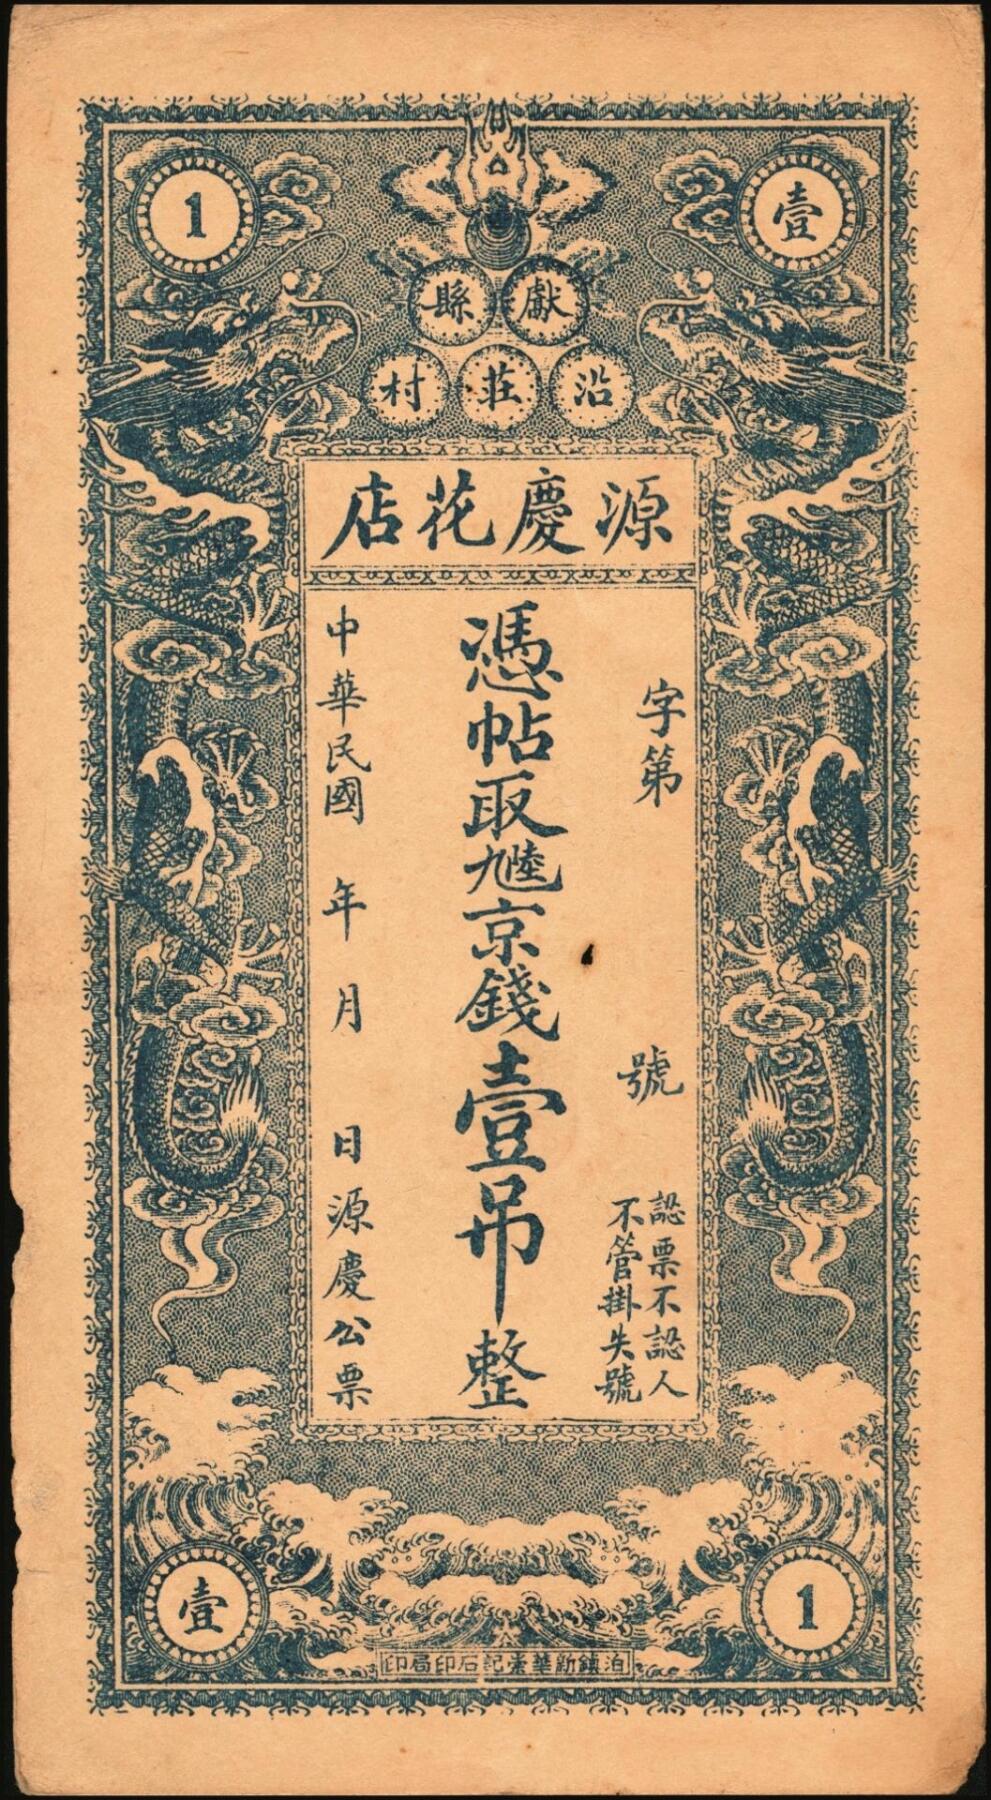 1
壹
獻縣
沿莊村
源慶花店
字第 號
認票不認人
不管掛失號
憑帖取九陸京錢壹吊整
中華民國 年 月 日源慶公票
壹
1
泊鎮新華素記石印局印